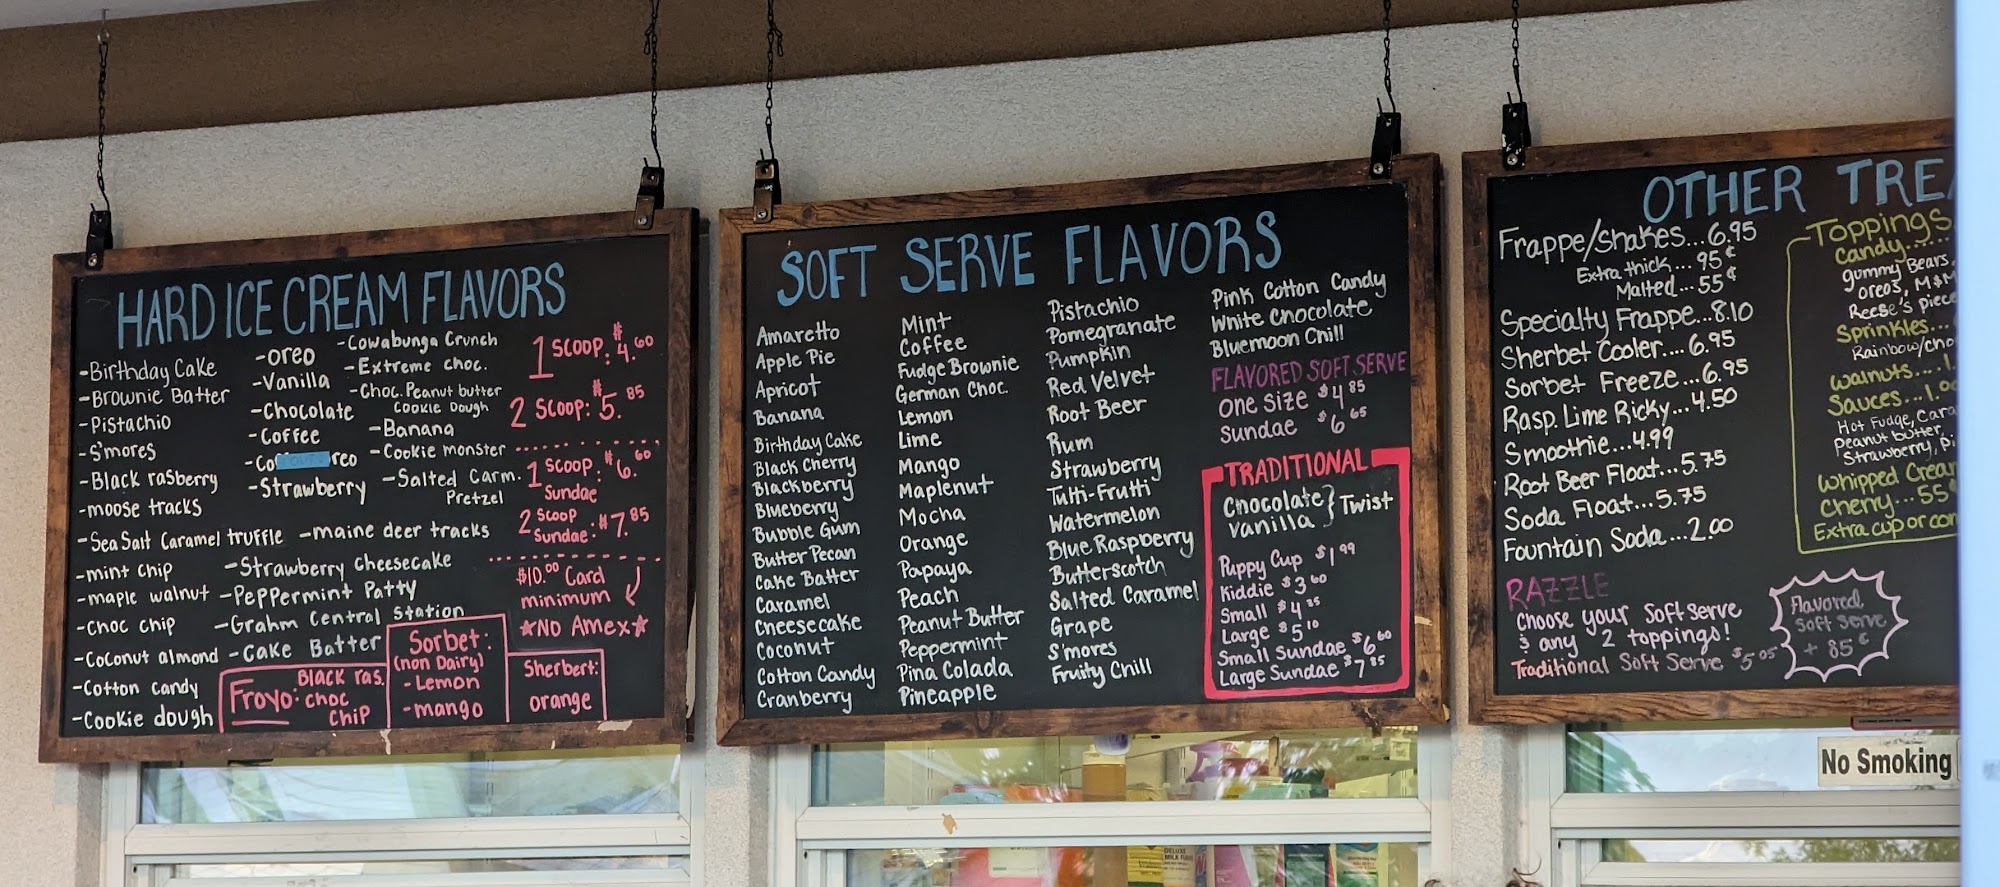 HARD ICE CREAM FLAVORS
-Birthday Cake
-Brownie Batter
-Pistachio
-S'mores
-Black raspberry
-moose tracks
-Sea Salt Caramel truffle
-mint chip
-maple walnut
-choc chip
-Coconut almond
-Cotton candy
-Cookie dough
-oreo
-Vanilla
-Chocolate
-Coffee
-Co
reo
-Strawberry
-maine deer tracks
-Strawberry cheesecake
-Peppermint Patty
-Grahm Central Station
-Cake Batter
-Cowabunga Crunch
-Extreme choc.
-Choc. Peanut butter
Cookie Dough
-Banana
-Cookie monster
-Salted Carm.
Pretzel
1 SCOOP: $4.60
2 SCOOP: $5.85
1 SCOOP: $6.60
Sundae
2 SCOOP
Sundae: $7.85
$10.00 Card
minimum
*NO Amex*
Froyo: BLACK ras.
choc
chip
Sorbet:
(non Dairy)
-Lemon
-mango
Sherbert:
orange
SOFT SERVE FLAVORS
Amaretto
Apple Pie
Apricot
Banana
Birthday Cake
Black Cherry
Blackberry
Blueberry
Bubble Gum
Butter Pecan
Cake Batter
Caramel
Cheesecake
Coconut
Cotton Candy
Cranberry
Mint
Coffee
Fudge Brownie
German Choc.
Lemon
Lime
Mango
Maplenut
Mocha
Orange
Papaya
Peach
Peanut Butter
Peppermint
Pina Colada
Pineapple
Pistachio
Pomegranate
Pumpkin
Red Velvet
Root Beer
Rum
Strawberry
Tutti-Frutti
Watermelon
Blue Raspberry
Butterscotch
Salted Caramel
Grape
S'mores
Fruity Chill
Pink Cotton Candy
White Chocolate
Bluemoon Chill
FLAVORED SOFT SERVE
One Size $4.85
Sundae $6.65
TRADITIONAL
Chocolate } Twist
Vanilla
Puppy Cup $1.99
Kiddie $3.60
Small $4.35
Large $5.10
Small Sundae $6.60
Large Sundae $7.85
OTHER TREA
Frappe/Shakes...6.95
Extra thick...95¢
Malted...55¢
Specialty Frappe...8.10
Sherbet Cooler....6.95
Sorbet Freeze...6.95
Rasp. Lime Ricky...4.50
Smoothie...4.99
Root Beer Float...5.75
Soda Float...5.75
Fountain Soda...2.00
RAZZLE
Choose your Soft serve
& any 2 toppings!
Traditional Soft Serve $5.05
Flavored
Soft serve
+ 85¢
Toppings
Candy......
gummy Bears,
oreos, M&M
Reese's piece
Sprinkles...
Rainbow/cho
Walnuts....1.
Sauces...1.00
Hot Fudge, Cara
Peanut butter,
Strawberry, Pi
Whipped Crean
Cherry...55¢
Extra cup or con
No Smoking